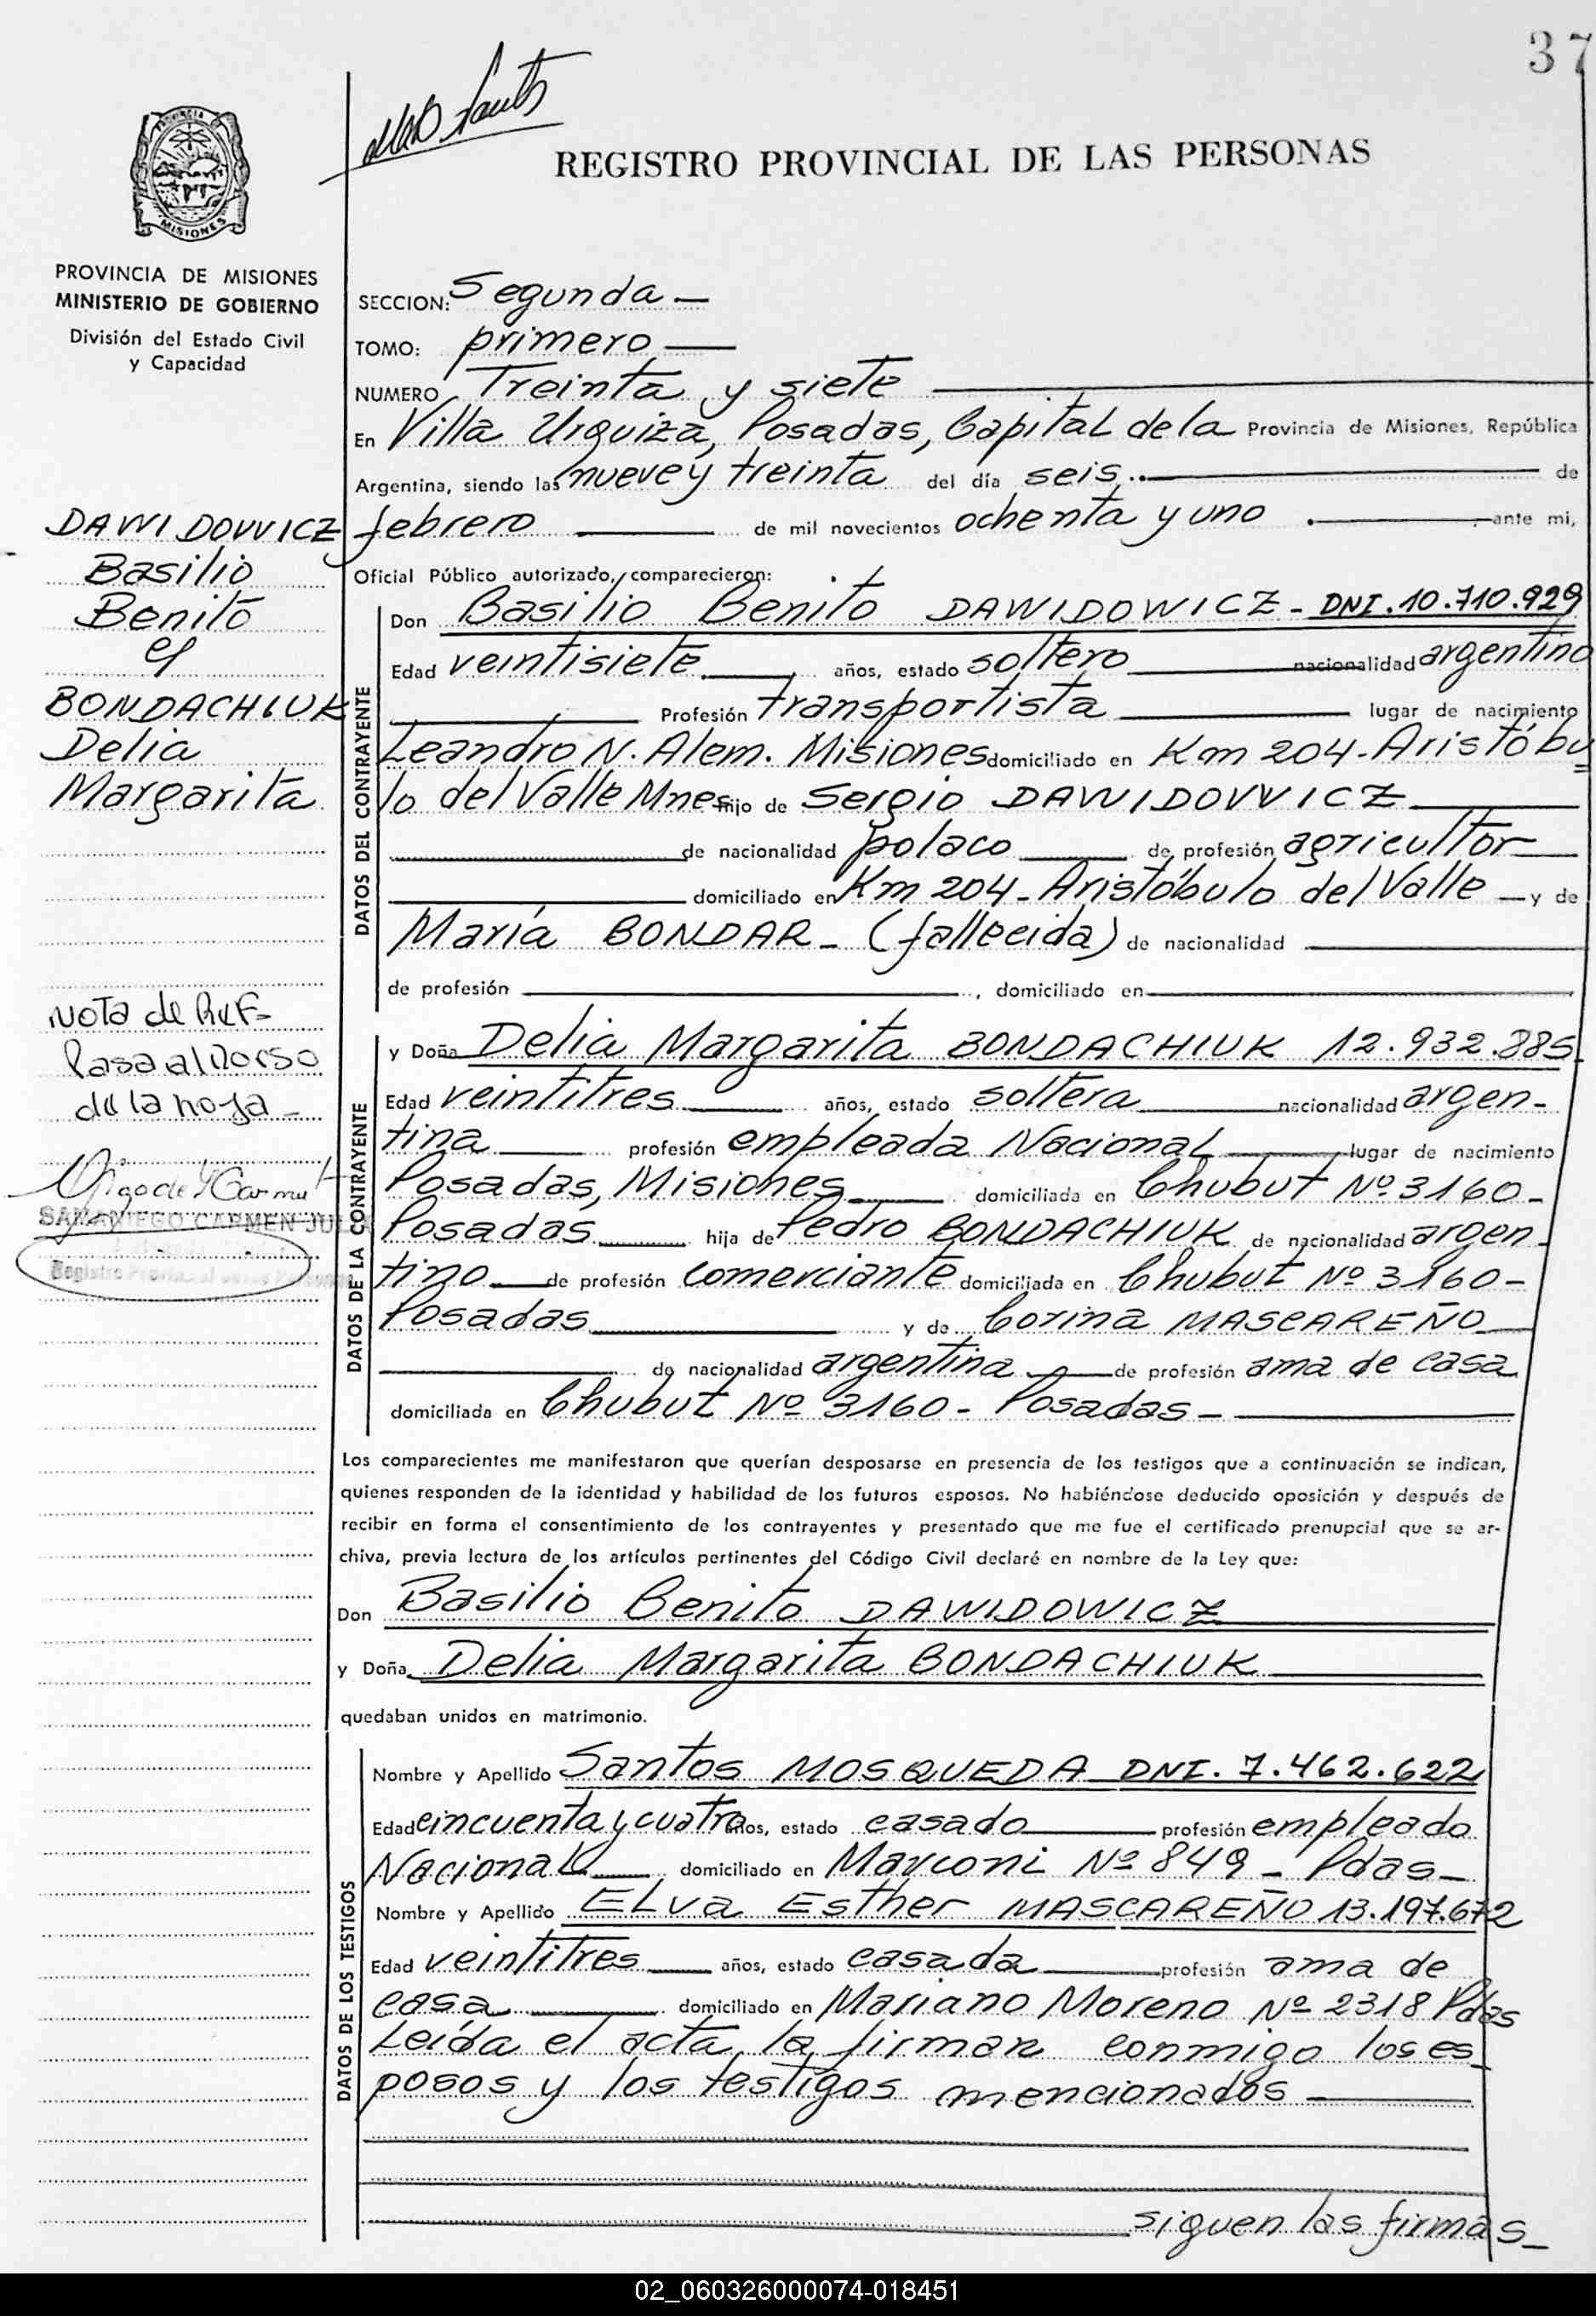 37
REGISTRO PROVINCIAL DE LAS PERSONAS
PROVINCIA
MISIONES
PROVINCIA DE MISIONES
MINISTERIO DE GOBIERNO
División del Estado Civil
y Capacidad
SECCION: Segunda —
TOMO: primero —
NUMERO Treinta y siete
En Villa Urquiza, Posadas, Capital de la Provincia de Misiones, República
Argentina, siendo las nueve y treinta del día seis de
febrero de mil novecientos ochenta y uno ante mi,
Oficial Público autorizado, comparecieron:
DAWIDOWICZ
Basilio
Benito
BONDACHIUK
Delia
Margarita
DATOS DEL CONTRAYENTE
Don Basilio Benito DAWIDOWICZ - DNI. 10.710.929
Edad veintisiete años, estado soltero nacionalidad argentino
Profesión transportista lugar de nacimiento
Leandro N. Alem. Misiones domiciliado en Km 204 - Aristóbu
lo del Valle Mnes hijo de Sergio DAWIDOWICZ
de nacionalidad polaco de profesión agricultor
domiciliado en Km 204 - Aristóbulo del Valle — y de
María BONDAR - (fallecida) de nacionalidad
de profesión , domiciliado en
Nota de Ref-
Pasa al Dorso
de la hoja -
SAMANIEGO CARMEN JULIA
Registro Provincial de las Personas
DATOS DE LA CONTRAYENTE
y Doña Delia Margarita BONDACHIUK 12.932.885
Edad veintitres años, estado soltera nacionalidad argen-
tina profesión empleada Nacional lugar de nacimiento
Posadas, Misiones domiciliada en Chubut Nº 3160 -
Posadas hija de Pedro BONDACHIUK de nacionalidad argen-
tino de profesión comerciante domiciliada en Chubut Nº 3160 -
Posadas y de Corina MASCAREÑO
de nacionalidad argentina de profesión ama de casa
domiciliada en Chubut Nº 3160 - Posadas -
Los comparecientes me manifestaron que querían desposarse en presencia de los testigos que a continuación se indican,
quienes responden de la identidad y habilidad de los futuros esposos. No habiéndose deducido oposición y después de
recibir en forma el consentimiento de los contrayentes y presentado que me fue el certificado prenupcial que se ar-
chiva, previa lectura de los artículos pertinentes del Código Civil declaré en nombre de la Ley que:
Don Basilio Benito DAWIDOWICZ
y Doña Delia Margarita BONDACHIUK
quedaban unidos en matrimonio.
DATOS DE LOS TESTIGOS
Nombre y Apellido Santos MOSQUEDA DNI. 7.462.622
Edad cincuenta y cuatro años, estado casado profesión empleado
Nacional domiciliado en Marconi Nº 849 - Pdas -
Nombre y Apellido ELva Esther MASCAREÑO 13.197.672
Edad veintitres años, estado casada profesión ama de
casa domiciliado en Mariano Moreno Nº 2318 Pdas
Leída el acta, la firman conmigo los es
posos y los testigos mencionados
siguen las firmas -
02_060326000074-018451